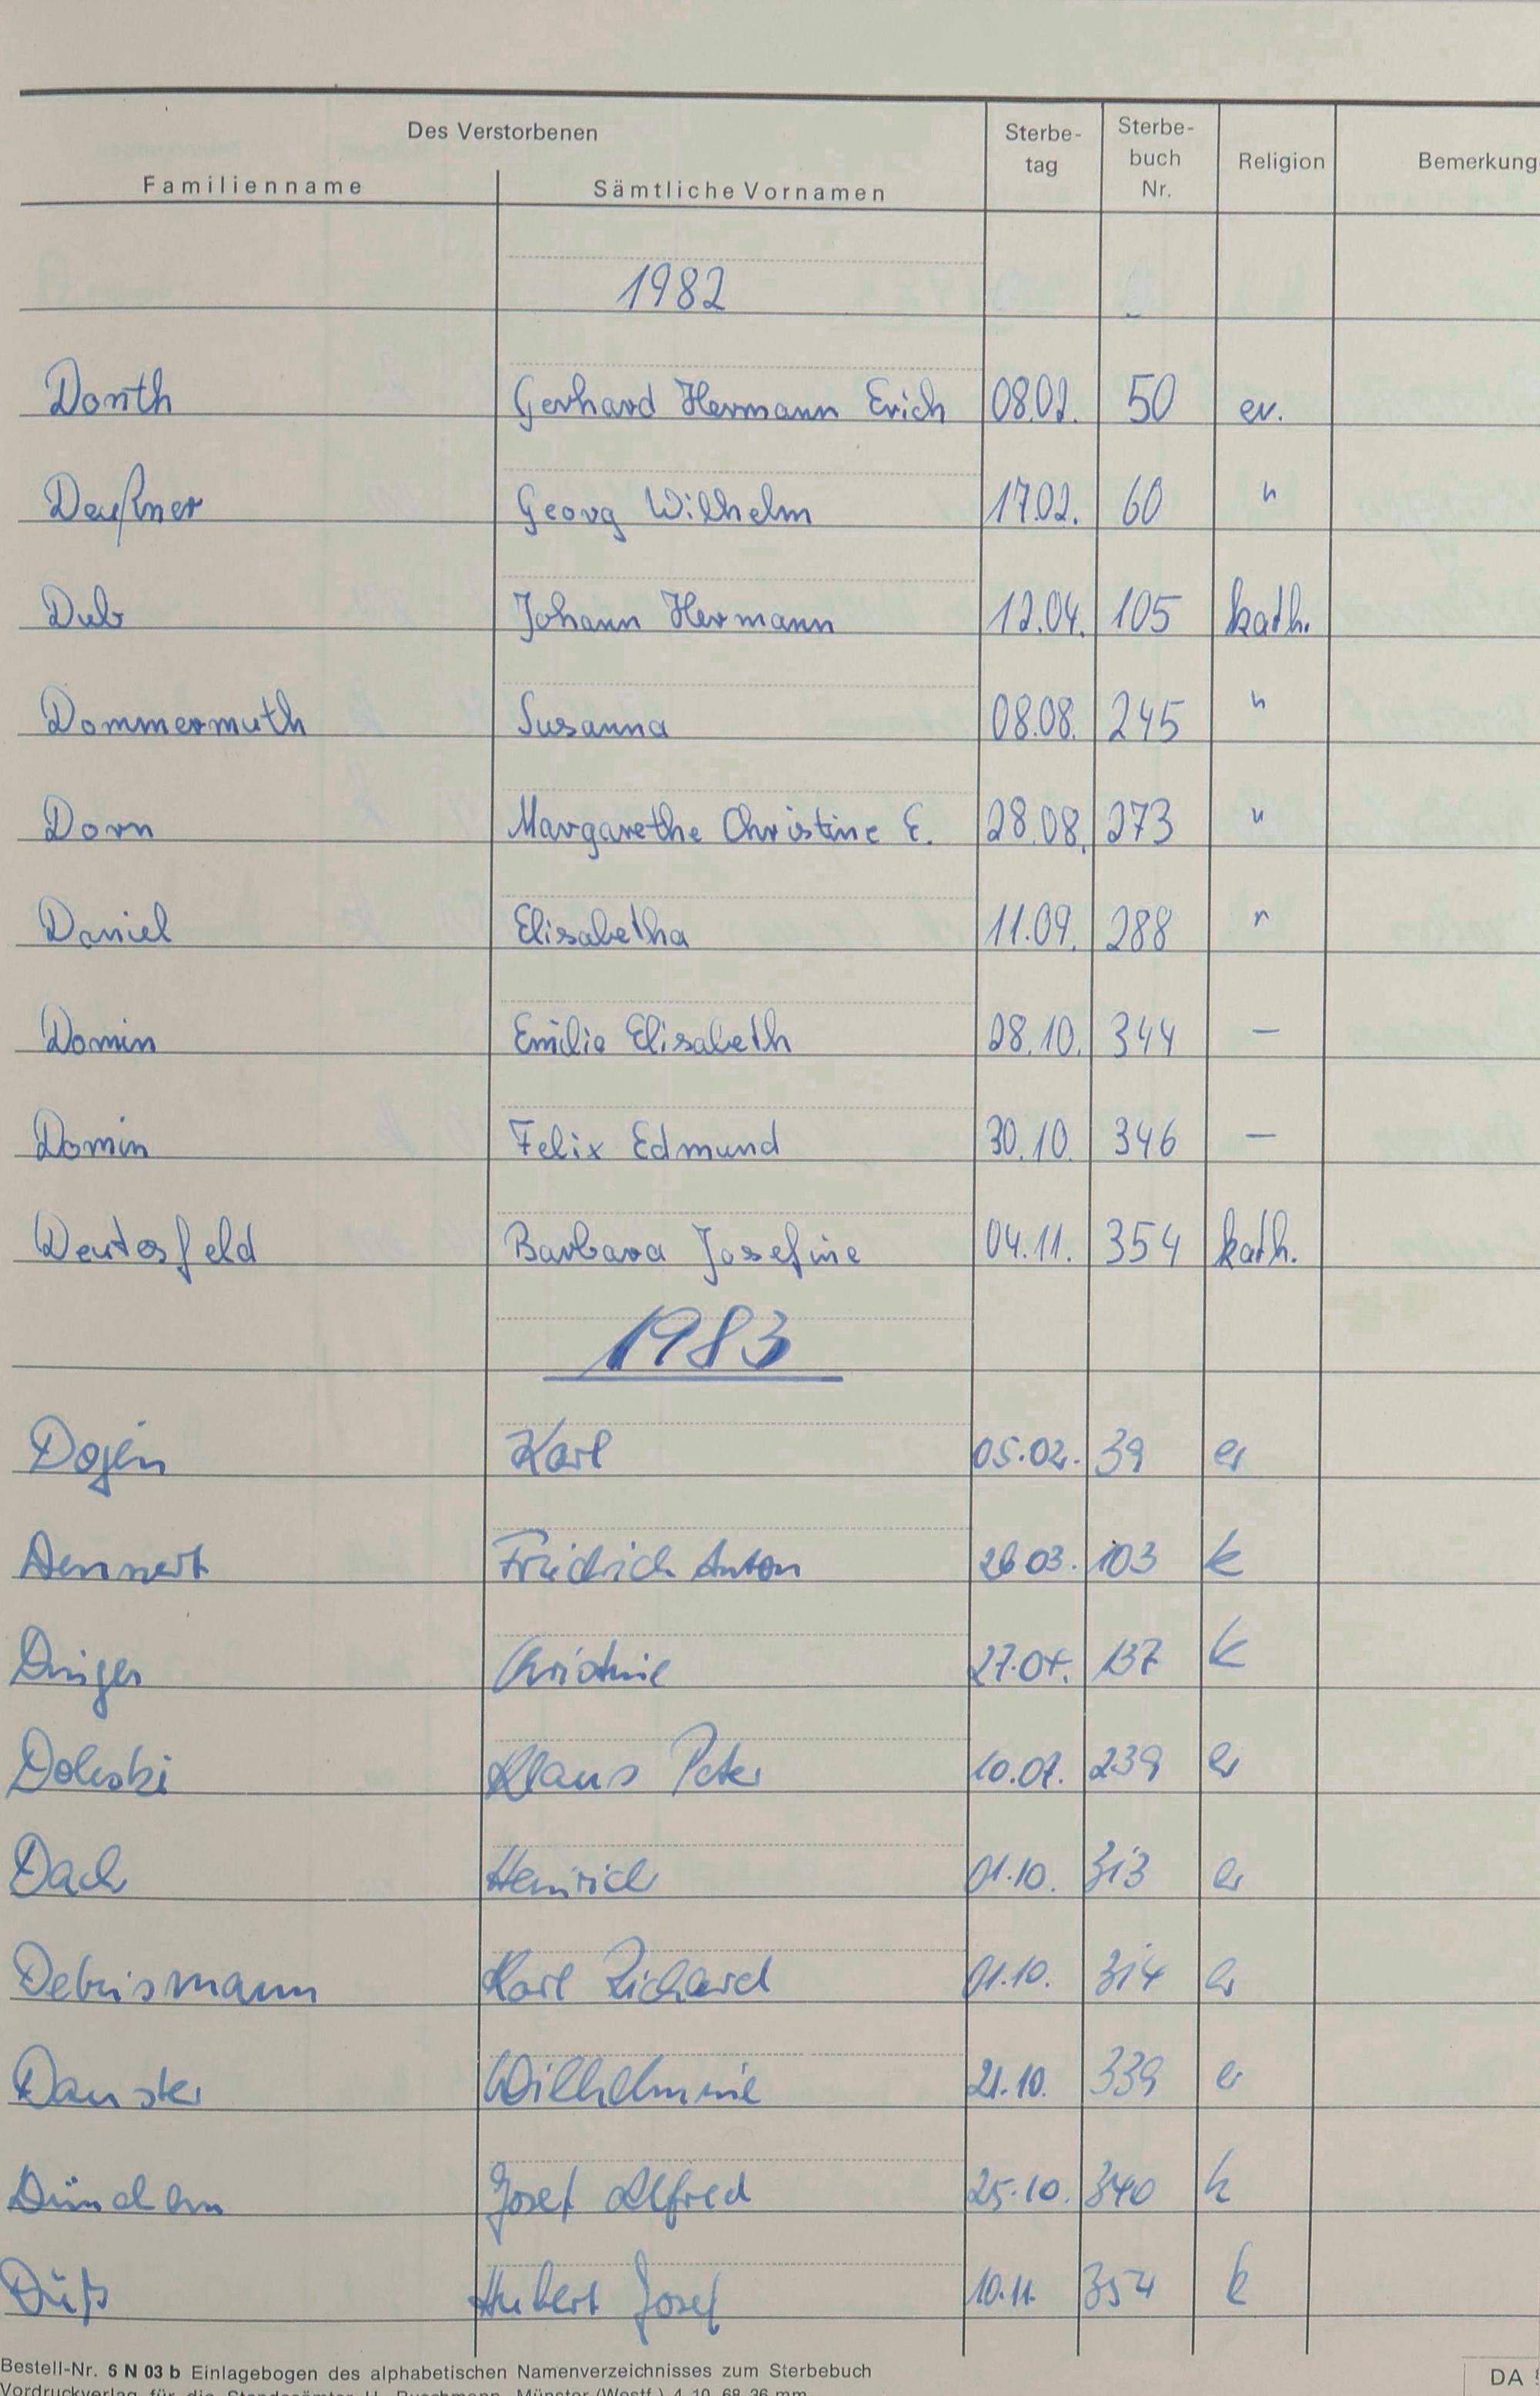 Des Verstorbenen
Familienname Sämtliche Vornamen Sterbe-tag Sterbe-buch Nr. Religion Bemerkung
1982
Donth Gerhard Hermann Erich 08.02. 50 ev.
Deußner Georg Wilhelm 17.02. 60 "
Dub Johann Hermann 12.04. 105 kath.
Dommermuth Susanna 08.08. 245 "
Dorn Margarethe Christine E. 28.08. 273 "
Daniel Elisabetha 11.09. 288 "
Domin Emilie Elisabeth 28.10. 344 —
Domin Felix Edmund 30.10. 346 —
Deutesfeld Barbara Josefine 04.11. 354 kath.
1983
Karl 05.02. 39 ev
Dennert Friedrich Anton 26.03. 103 k
Dinges Christine 27.04. 137 k
Doleski Klaus Peter 10.07. 239 ev
Dach Heinrich 01.10. 313 ev
Debusmann Karl Richard 01.10. 314 ev
Dauster Wilhelmine 21.10. 339 ev
Josef Alfred 25.10. 340 k
Düß Hubert Josef 10.11. 354 k
Bestell-Nr. 6 N 03 b Einlagebogen des alphabetischen Namenverzeichnisses zum Sterbebuch DA
Vordruckverlag für die Standesämter Münster (Westf.) 4 10 68 36 mm